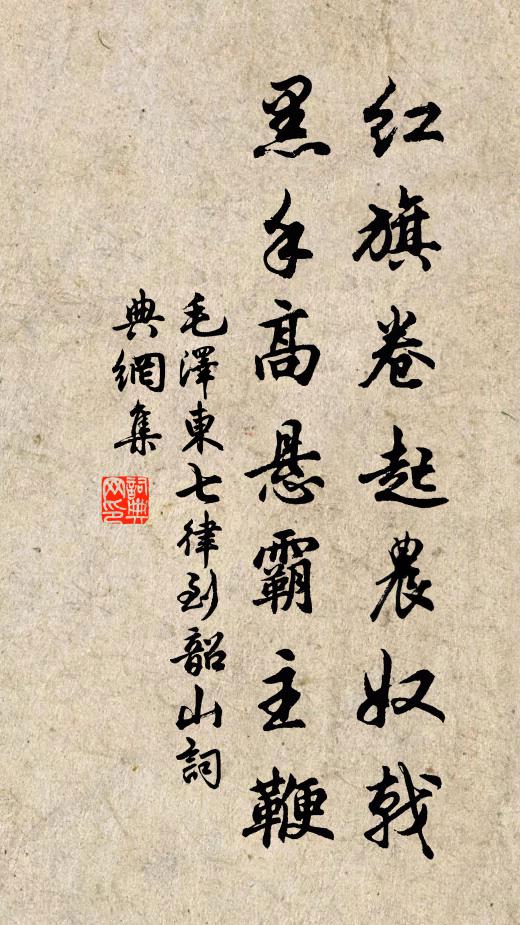 红旗卷起農奴戟
黑手高悬霸主鞭
毛澤東七律到韶山詞
典網集
詞典网印